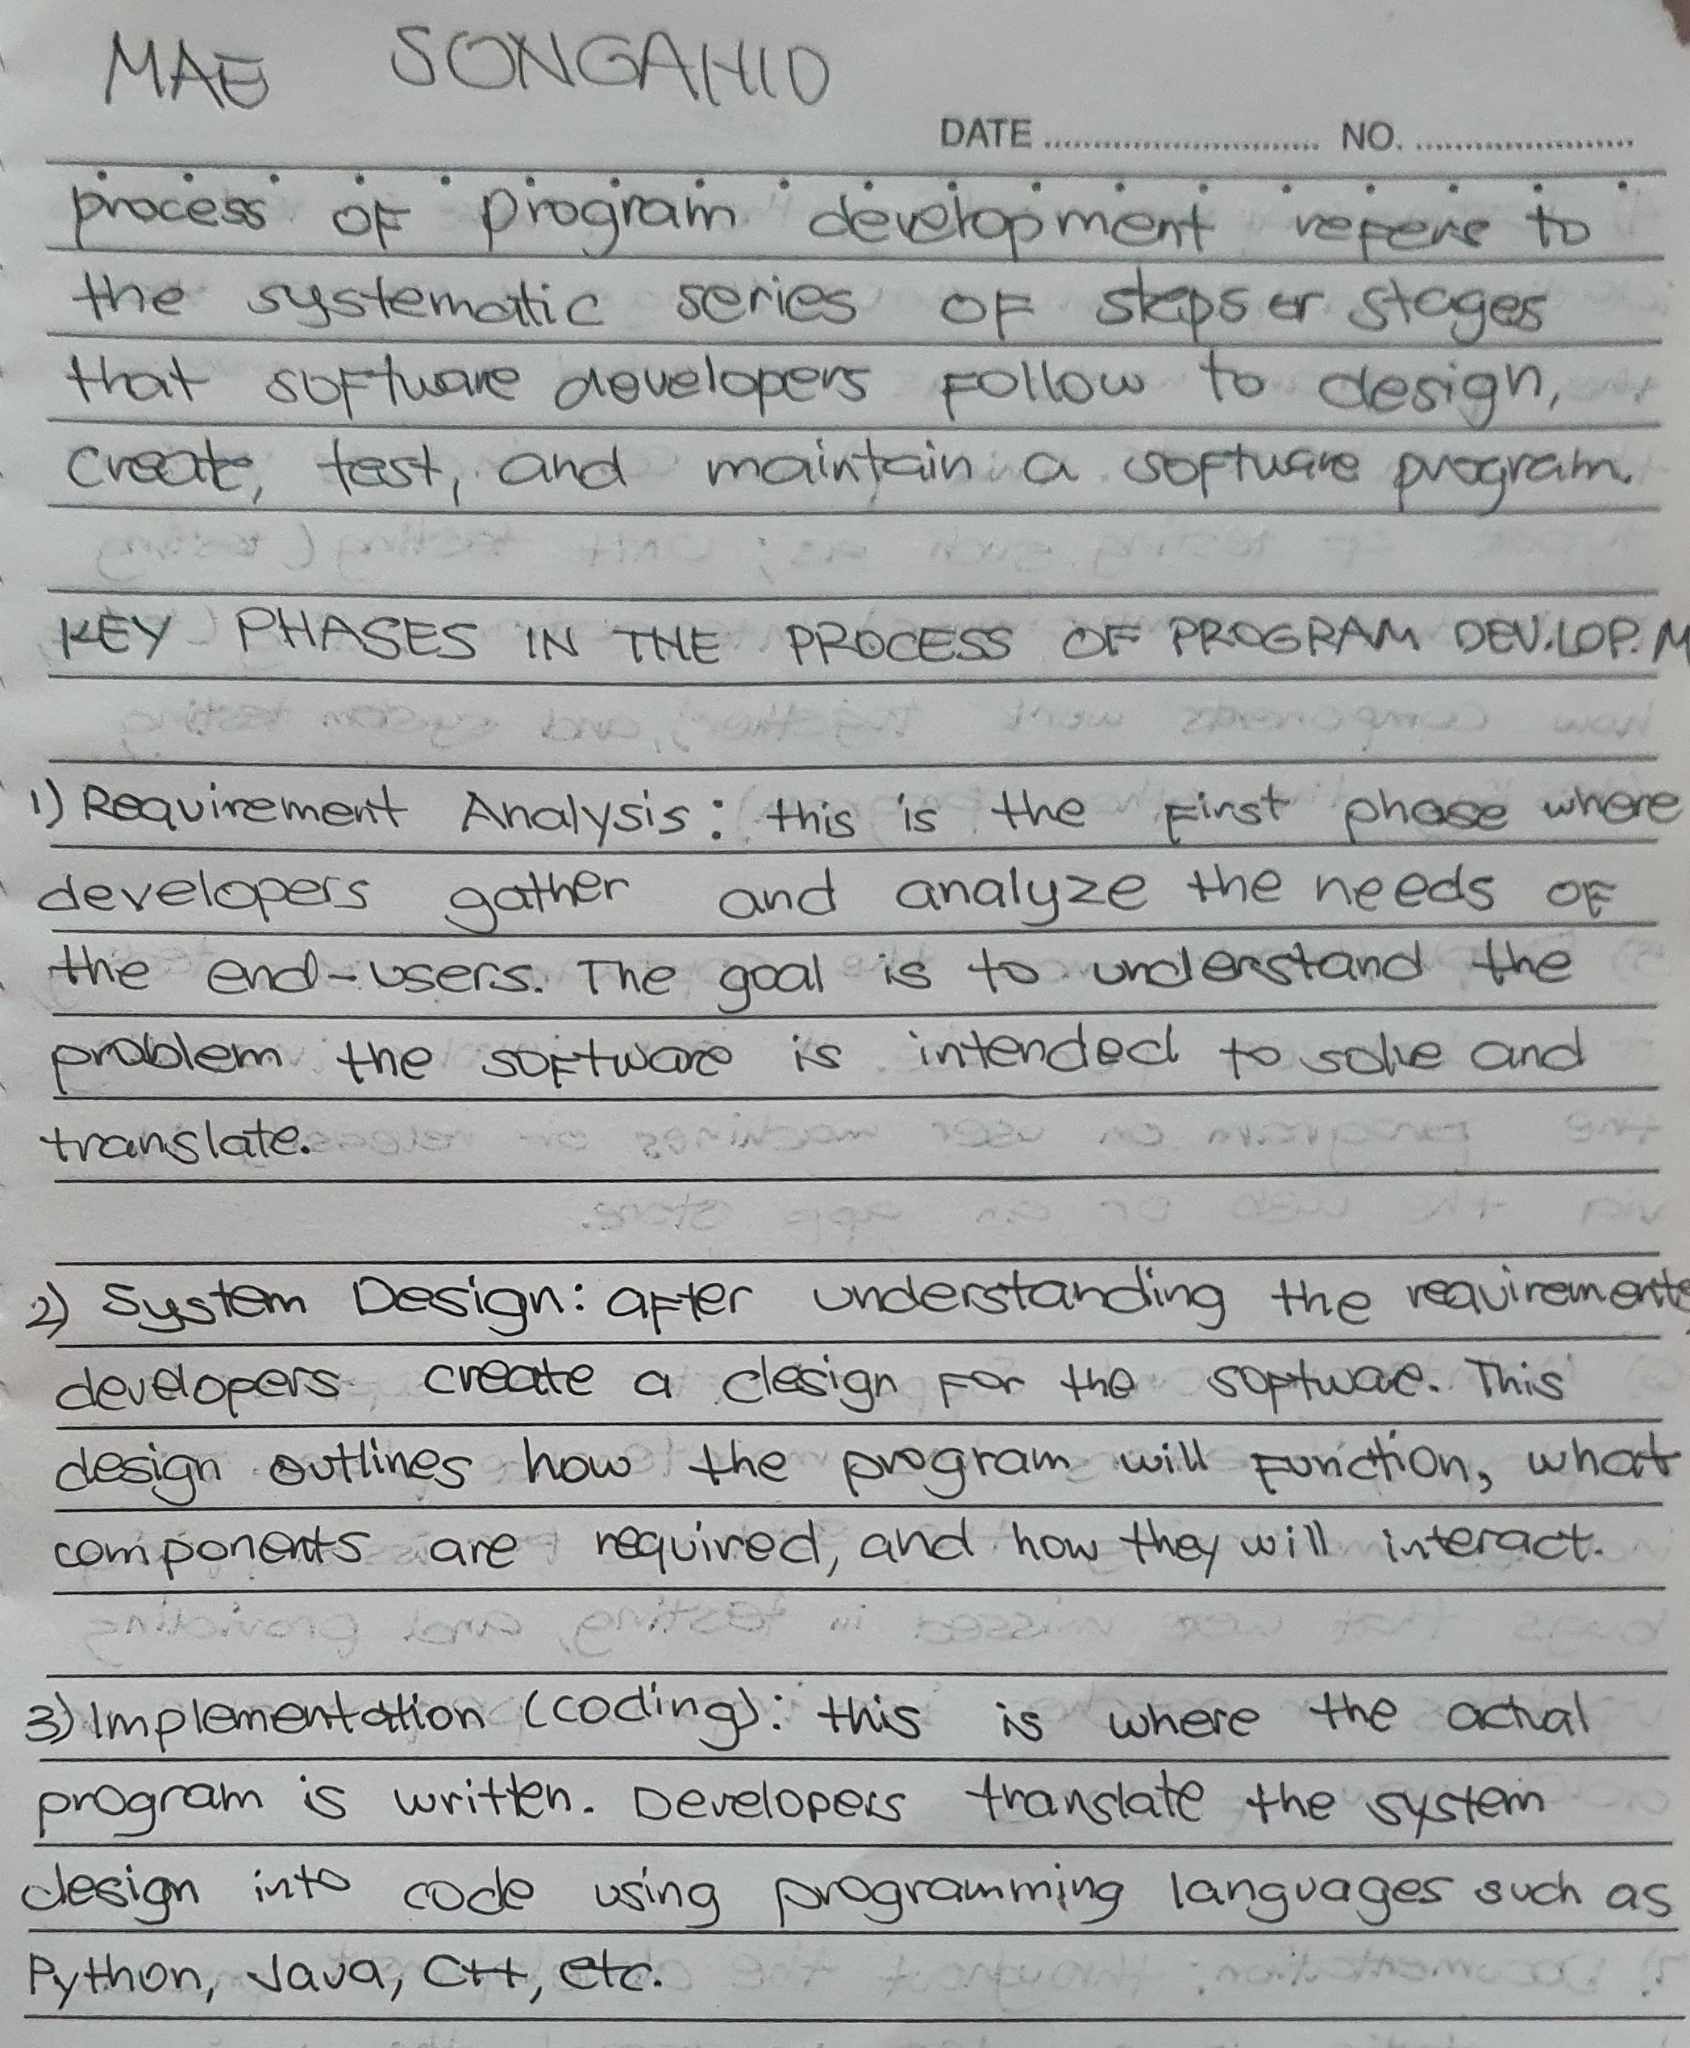 MAE SONGAHID
DATE NO.
process of program development refers to
the systematic series of steps or stages
that software developers follow to design,
create, test, and maintain a software program.
KEY PHASES IN THE PROCESS OF PROGRAM DEV.LOP.M
1) Requirement Analysis: this is the first phase where
developers gather and analyze the needs of
the end-users. The goal is to understand the
problem the software is intended to solve and
translate.
2) System Design: after understanding the requirements,
developers create a design for the software. This
design outlines how the program will function, what
components are required, and how they will interact.
3) Implementation (coding): this is where the actual
program is written. Developers translate the system
design into code using programming languages such as
Python, Java, C++, etc.